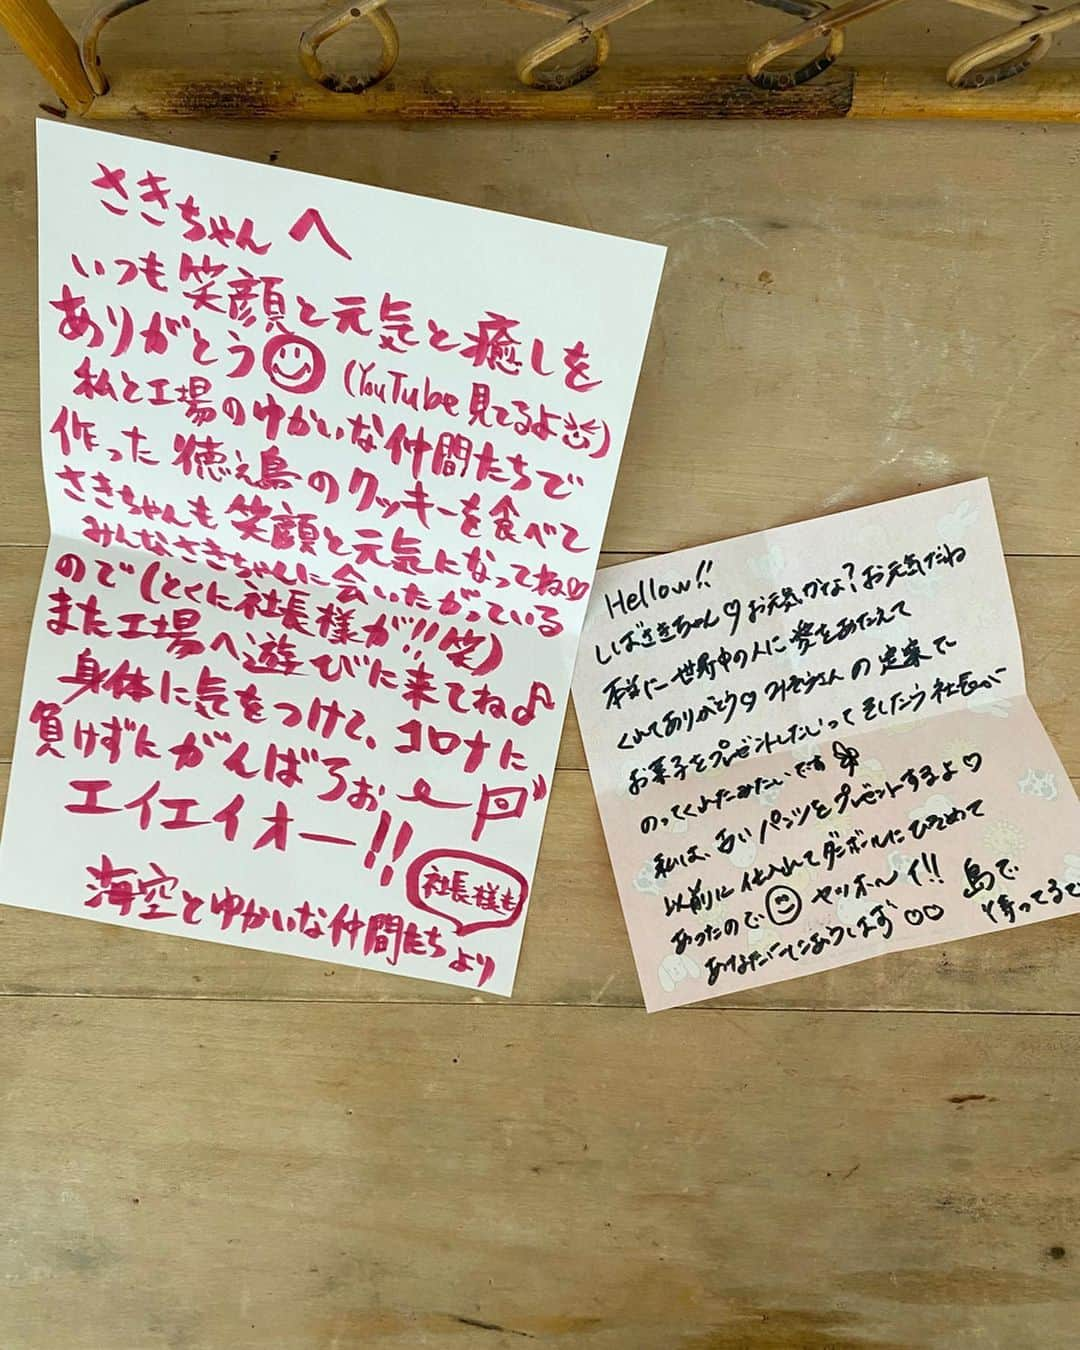 さきちゃんへ
いつも笑顔と元気と癒しを
ありがとう (YouTube見てるよ)
私と工場のゆかいな仲間たちで
作った徳之島のクッキーを食べて
さきちゃんも笑顔と元気になってね♡
みんなさきちゃんに会いたがっている
ので(とくに社長様が!!笑)
また工場へ遊びに来てね♪
身体に気をつけて、コロナに
負けずにがんばろぉー
エイエイオー!!
社長様も
海空とゆかいな仲間たちより
Hellow!!
しばさきちゃん♡お元気かな?お元気だね
本当に世界中の人に愛をあたえて
くれてありがとう♡ みぞうさんの定案で
お菓子をプレゼントしたいって そしたら社長が
のってくれたみたいです
私は、古いパンツをプレゼントするよ♡
以前に仕入れてダンボールにひそめて
あったので ヤッホーイ!! 島で
待ってるで